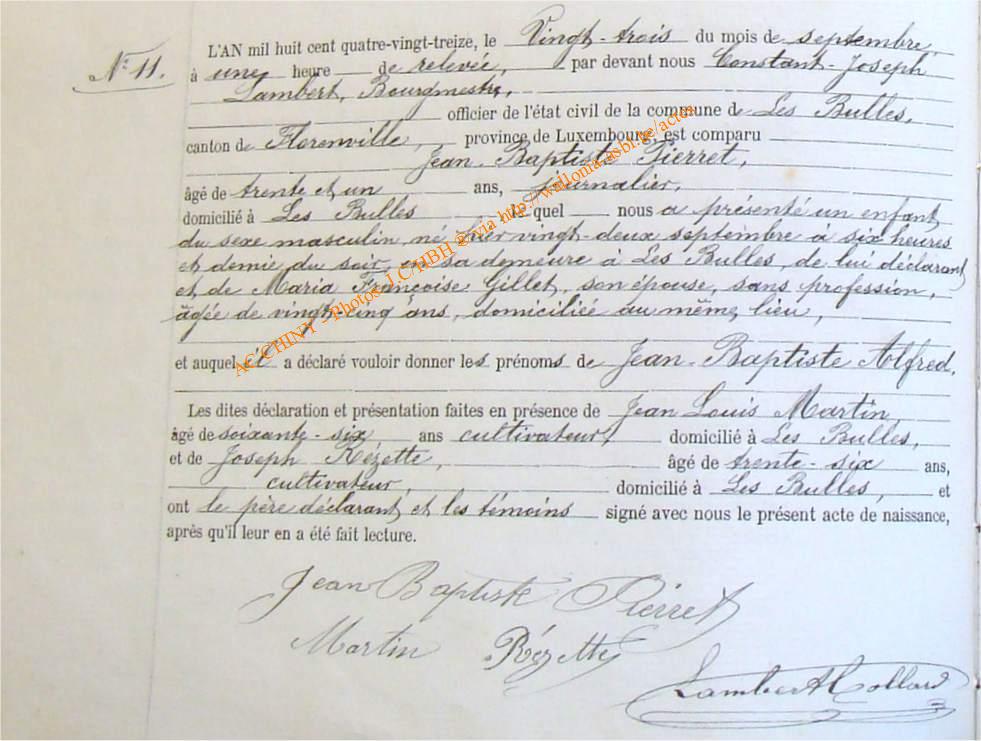 N° 11.
L'AN mil huit cent quatre-vingt-treize, le Vingt-trois du mois de septembre,
à une heure de relevée, par devant nous Constant-Joseph
Lambert, Bourgmestre,
officier de l'état civil de la commune de Les Bulles,
canton de Florenville, province de Luxembourg, est comparu
Jean-Baptiste Pierret,
âgé de trente et un ans, journalier,
domicilié à Les Bulles lequel nous a présenté un enfant
du sexe masculin, né hier vingt-deux septembre à six heures
et demie du soir, en sa demeure à Les Bulles, de lui déclarant
et de Maria Françoise Gillet, son épouse, sans profession,
âgée de vingt-cinq ans, domiciliée au même lieu,
et auquel il a déclaré vouloir donner les prénoms de Jean-Baptiste Alfred.
Les dites déclaration et présentation faites en présence de Jean Louis Martin,
âgé de soixante-six, ans cultivateur, domicilié à Les Bulles,
et de Joseph Rézette, âgé de trente-six ans,
cultivateur, domicilié à Les Bulles, et
ont le père déclarant et les témoins signé avec nous le présent acte de naissance,
après qu'il leur en a été fait lecture.
Jean Baptiste Pierret
Martin Rézette
Lambert Collard
AC CHINY - Photos J.C/HBH @via http://wallonia.asbl.be/actes